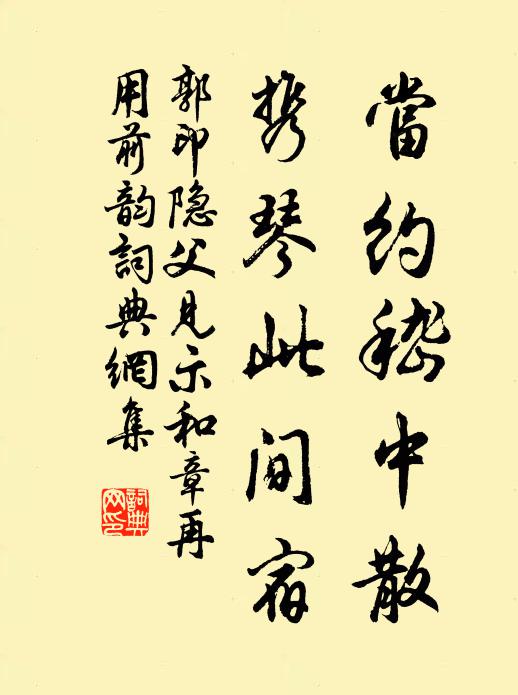 當約嵇中散
携琴此间宿
郭印隐父見示和章再
用前韵詞典網集
詞典網印